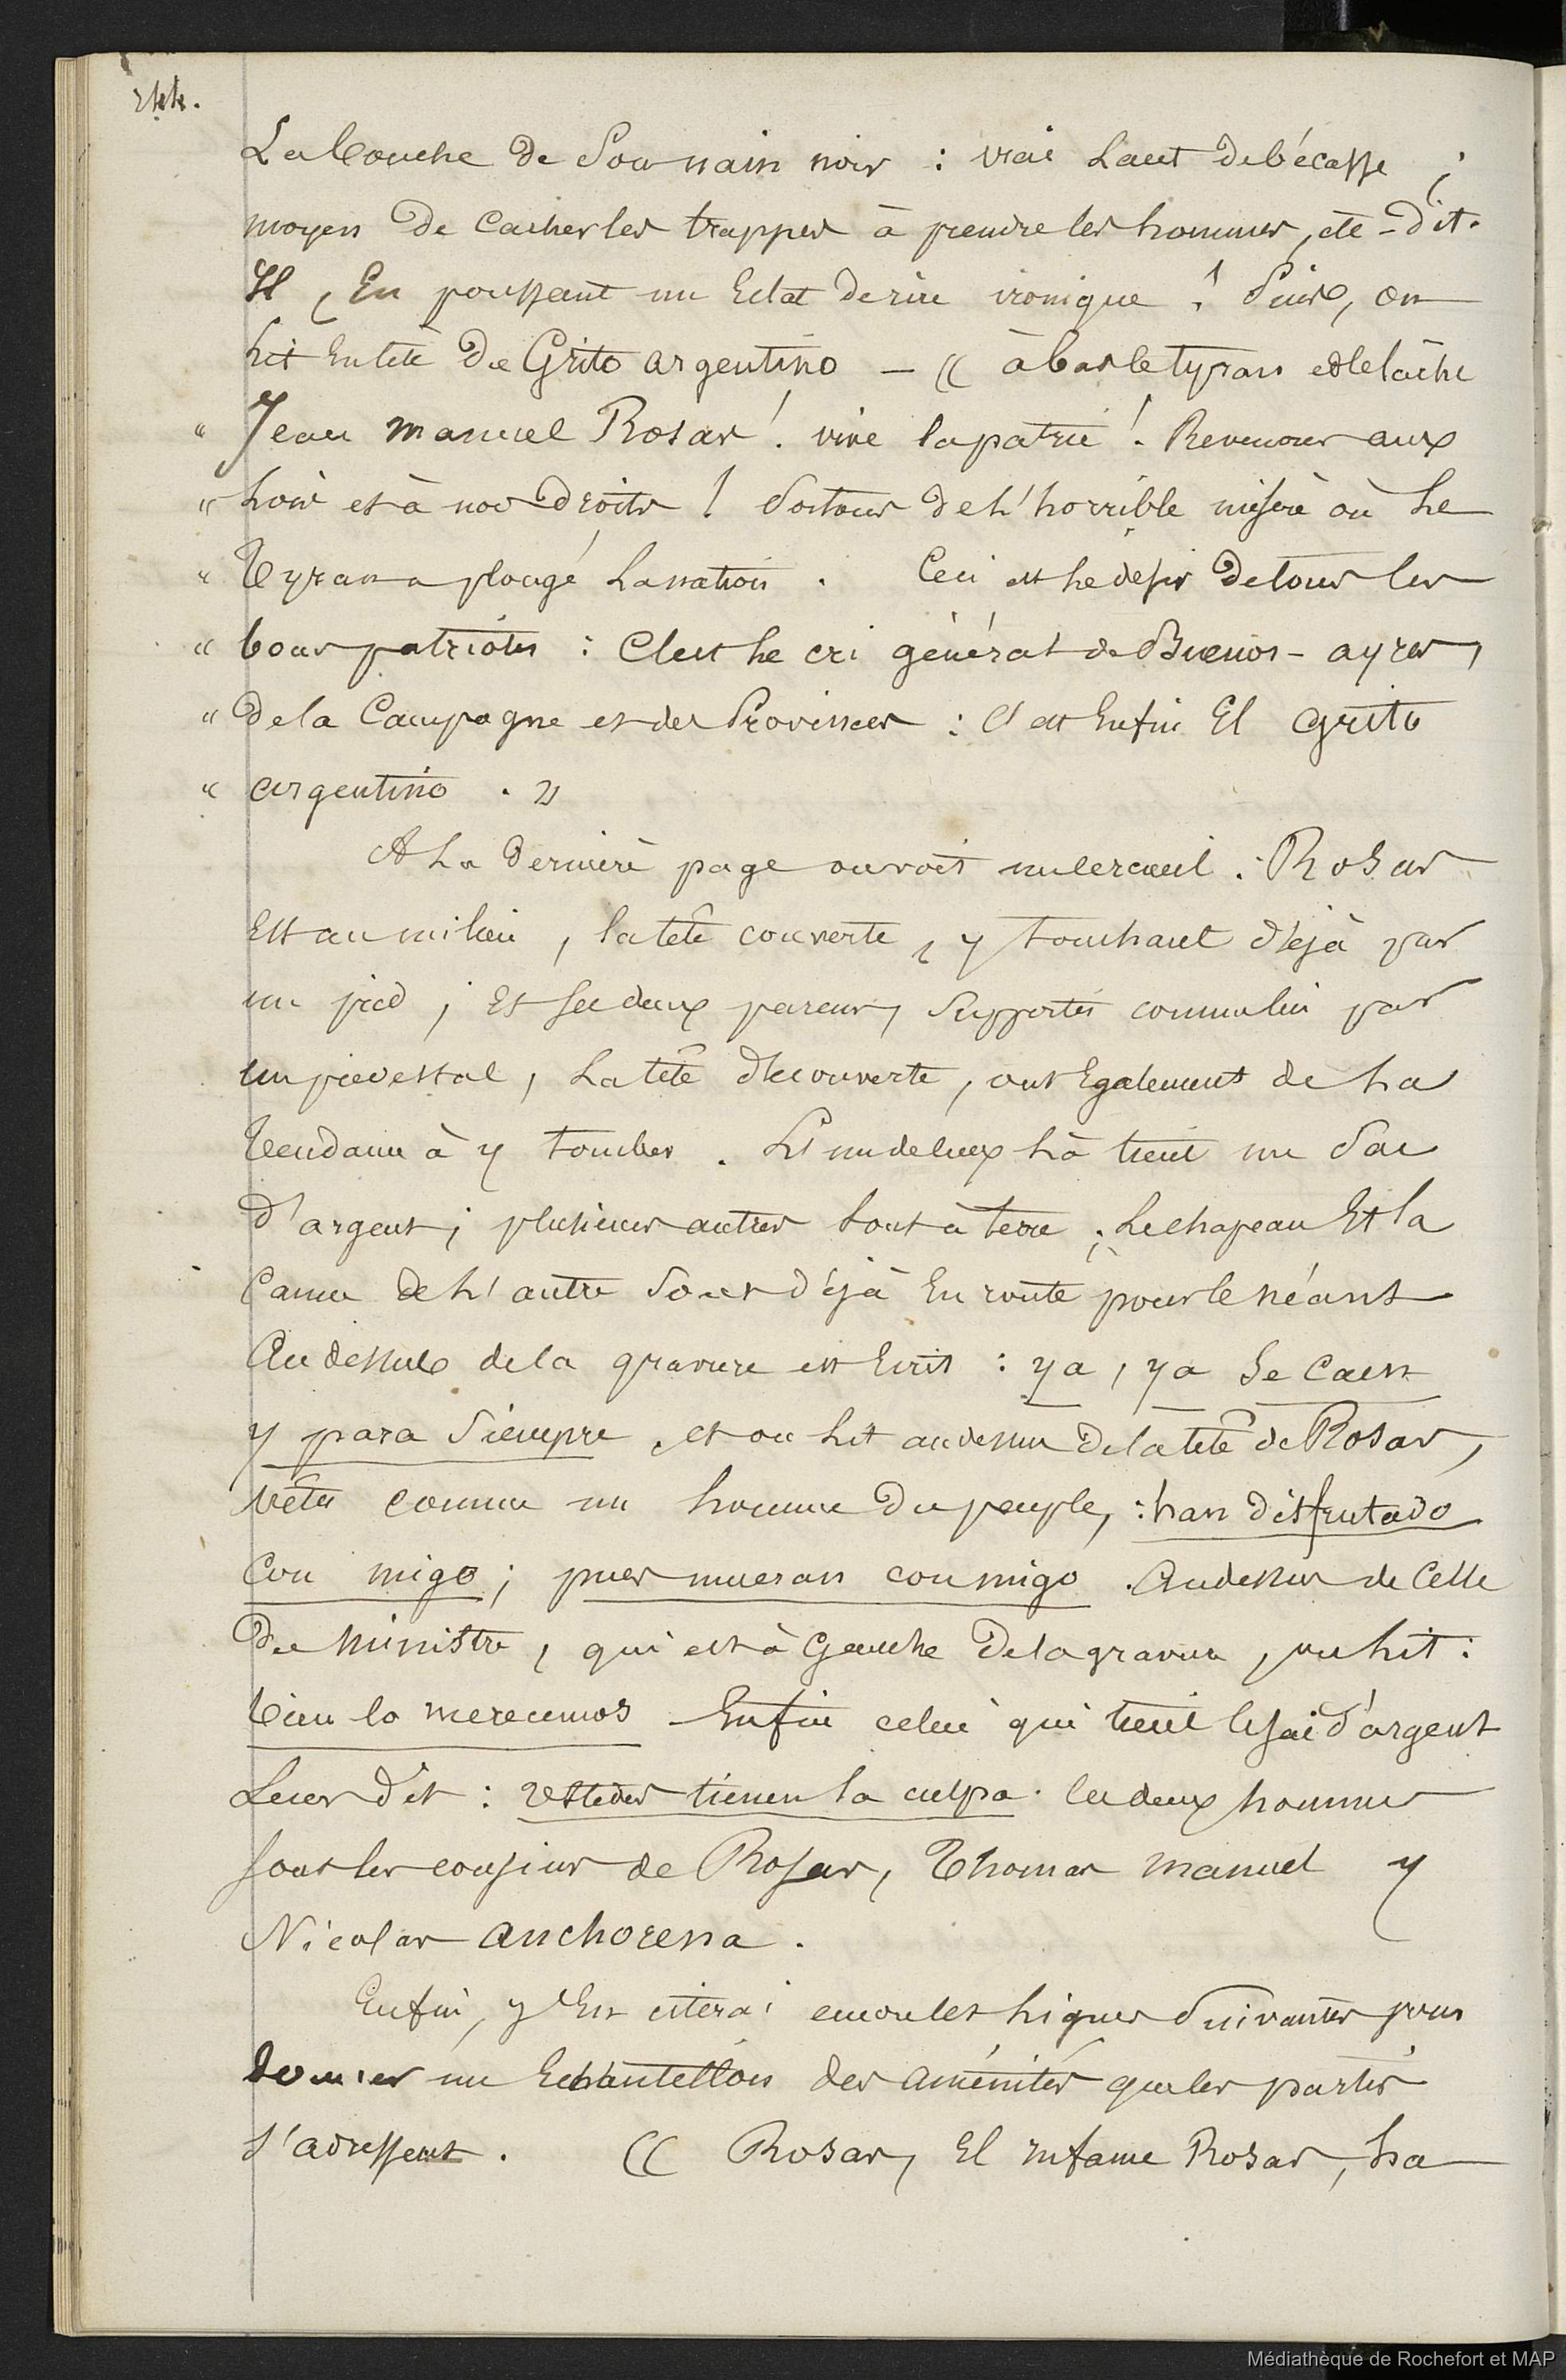 244.
La bouche de son nain noir : vrai saut de bécasse ;
moyen de cacher les trappes à prendre les hommes, etc - dit.
Il, En poussant un Eclat de rire ironique ! Puis, on
lit En tête de Grito argentino — « à bas le tyran et le lâche
" Jean manuel Rosas ! vive la patrie ! Revenons aux
" Lois et à nos Droits ! Sortons de l'horrible misère où le
" Tyran a plongé La nation . Ceci est le désir de tous les
" bons patriotes : C'est le cri général de Buenos - ayres,
" De la Campagne et des Provinces : C'est Enfin El Grito
" argentino . »
A La Dernière page on voit un cercueil : Rosas
Est au milieu , la tête couverte , y touchant déjà par
un pied ; Et ses deux parens, Supportés comme lui par
un piedestal , La tête découverte , ont Egalement de La
Tendance à y tomber . L'un d'eux là tient un Sac
d'argent ; plusieurs autres Sont à terre ; Le chapeau Et la
Canne de L'autre Sont déjà En route pour le néant
Au dessus de la gravure est Ecrit : ya , ya se caen
y para siempre , et on lit au dessus de la tête de Rosas,
vêtu comme un homme du peuple, : han disfrutado
con migo ; pues mueran con migo . Au dessus de Celle
Du Ministre , qui est à Gauche De la gravure , on lit :
bien lo merecemos Enfin celui qui tient le sac d'argent
Leur dit : Ustedes tienen la culpa . les deux hommes
sont les cousins de Rosas, Thomas manuel y
Nicolas anchorena .
Enfin, J'En citerai encore les Lignes Suivantes pour
donner un Echantillon des aménités que les partis
s'adressent . « Rosas, El infame Rosas, ha
Médiathèque de Rochefort et MAP